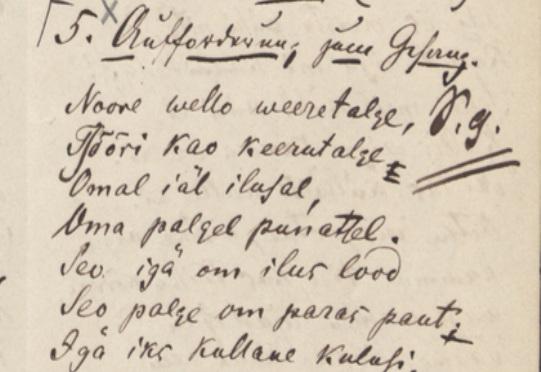 5. Aufforderung zum Gesang.
Noore wello weeretalge, S. g.
Tööri kao keerutalge
Omal iäl ilusal,
Oma palgel punatsel.
Seo igä om ilus lood
Seo palge om paras pant;
Igä iks kullane kulusi,